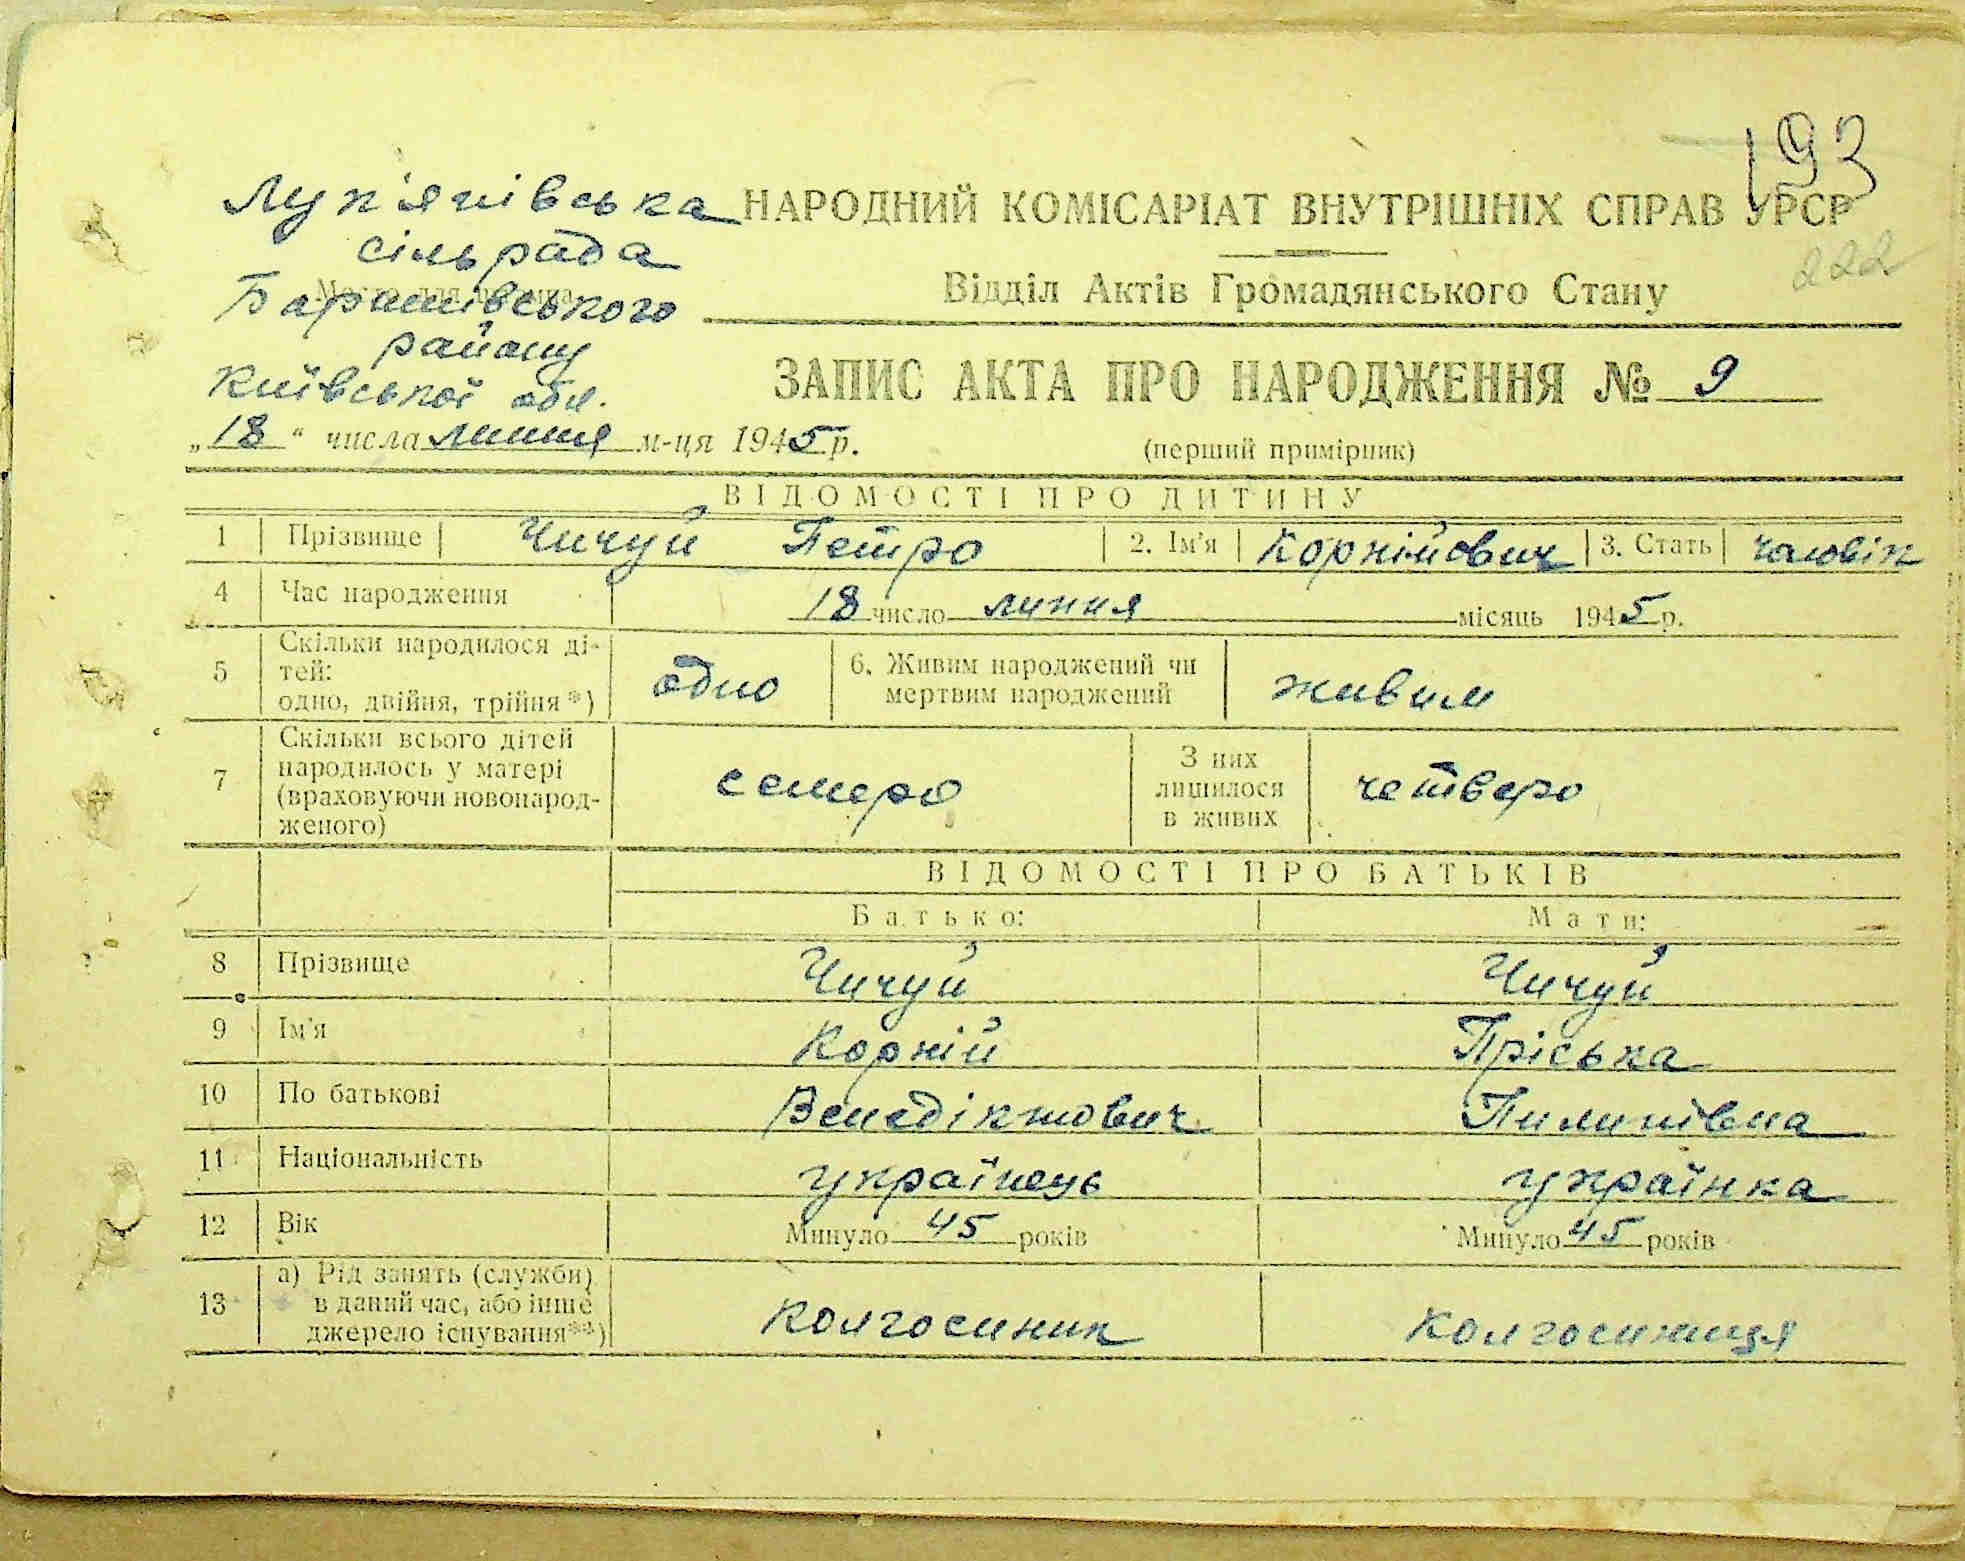 193
Лук'янівська НАРОДНИЙ КОМІСАРІАТ ВНУТРІШНІХ СПРАВ УРСР
сільрада
222
Барашівського Відділ Актів Громадянського Стану
району
Київської обл.
ЗАПИС АКТА ПРО НАРОДЖЕННЯ № 9
„18“ числа липня м-ця 1945 р. (перший примірник)
ВІДОМОСТІ ПРО ДИТИНУ
1 Прізвище Чичуй Петро 2. Ім'я Корнійович 3. Стать чоловік
4 Час народження 18 число липня місяць 1945 р.
5 Скільки народилося ді-
тей:
одно, двійня, трійня*) одно 6. Живим народжений чи
мертвим народжений живим
7 Скільки всього дітей
народилось у матері
(враховуючи новонарод-
женого) семеро З них
лишилося
в живих четверо
ВІДОМОСТІ ПРО БАТЬКІВ
Батько: Мати:
8 Прізвище Чичуй Чичуй
9 Ім'я Корній Пріська
10 По батькові Венедіктович Пилипівна
11 Національність українець українка
12 Вік Минуло 45 років Минуло 45 років
13 а) Рід занять (служби)
в даний час, або інше
джерело існування**) колгоспник колгоспниця